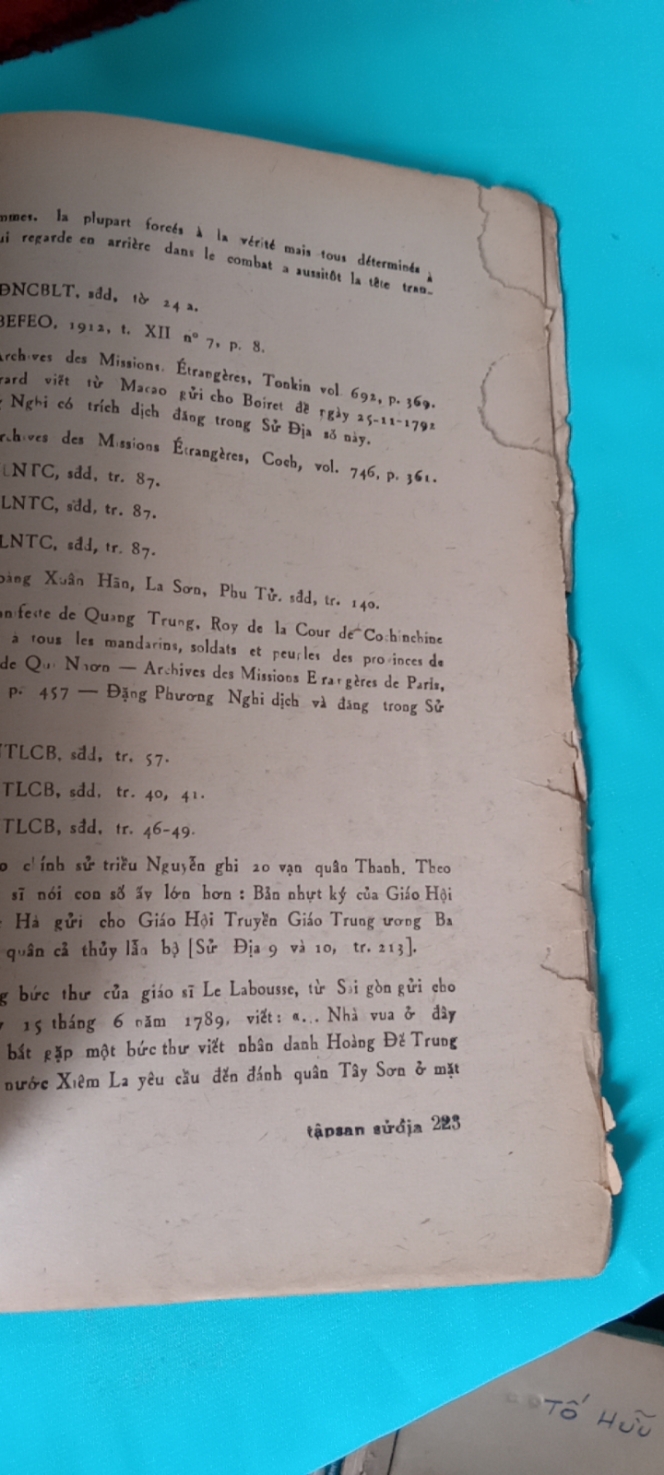 la plupart forcés à la vérité mais tous déterminés à
regarde en arrière dans le combat a aussitôt la tête tran-
ĐNCBLT, sđd, tờ 24 a.
BEFEO, 1912, t. XII nº 7, p. 8.
Archives des Missions. Étrangères, Tonkin vol. 692, p. 369.
viết từ Macao gửi cho Boiret đề ngày 25-11-1792
Nghi có trích dịch đăng trong Sử Địa số này.
des Missions Étrangères, Coch, vol. 746, p. 361.
LNTC, sđd, tr. 87.
LNTC, sđd, tr. 87.
LNTC, sđd, tr. 87.
Xuân Hãn, La Sơn, Phu Tử. sđd, tr. 140.
de Quang Trung, Roy de la Cour de Cochinchine
à tous les mandarins, soldats et peuples des provinces de
de Qui Nhơn — Archives des Missions Etrangères de Paris,
p. 457 — Đặng Phương Nghi dịch và đăng trong Sử
TLCB, sđd, tr. 57.
TLCB, sđd, tr. 40, 41.
TLCB, sđd, tr. 46-49.
chính sử triều Nguyễn ghi 20 vạn quân Thanh. Theo
sĩ nói con số ấy lớn hơn : Bản nhựt ký của Giáo Hội
Hà gửi cho Giáo Hội Truyền Giáo Trung ương Ba
quân cả thủy lẫn bộ [Sử Địa 9 và 10, tr. 213].
bức thư của giáo sĩ Le Labousse, từ Sài gòn gửi cho
15 tháng 6 năm 1789, viết : «... Nhà vua ở đây
bắt gặp một bức thư viết nhân danh Hoàng Đế Trung
nước Xiêm La yêu cầu đến đánh quân Tây Sơn ở mặt
tậpsan sửđịa 223
TỐ HỮU